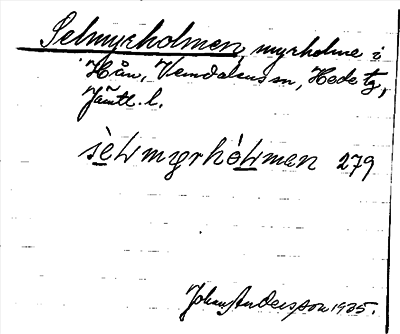 Selmyrholmen, myrholme i
Hån, Vemdalens sn, Hede tg,
Jämtl. l.
sèlmyrhòlmen 279
Johan Andersson 1935.